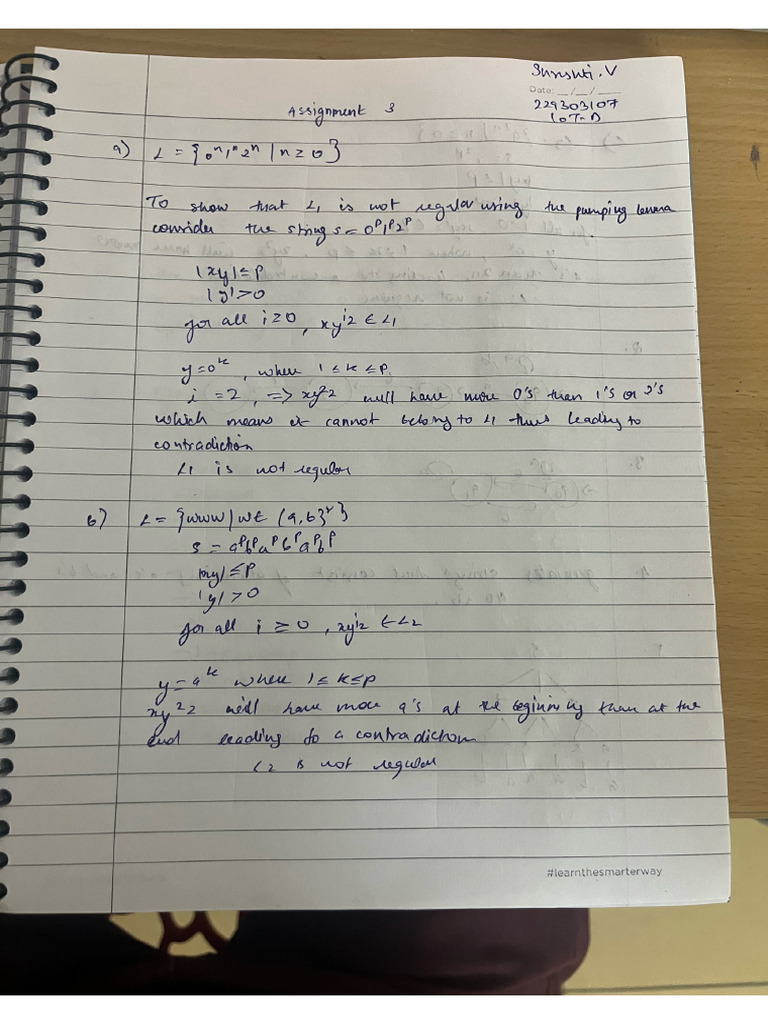 V
Date: __/__/____
229303107
IOT-D
Assignment 3
a) L = {0ⁿ1ⁿ2ⁿ | n ≥ 0}
To show that L1 is not regular using the pumping lemma
consider the string s = 0ᵖ1ᵖ2ᵖ.
|xy| ≤ p
|y| > 0
for all i ≥ 0, xyⁱz ∈ L1
y = 0ᵏ, where 1 ≤ k ≤ p.
i = 2, => xy²z will have more 0's than 1's or 2's
which means it cannot belong to L1 thus leading to
contradiction
L1 is not regular
b) L = {www | w ∈ {a,b}*}
s = aᵖbᵖaᵖbᵖaᵖbᵖ
|xy| ≤ p
|y| > 0
for all i ≥ 0, xyⁱz ∈ L2
y = aᵏ where 1 ≤ k ≤ p
xy²z will have more a's at the beginning than at the
end leading to a contradiction
L2 is not regular
#learnthesmarterway